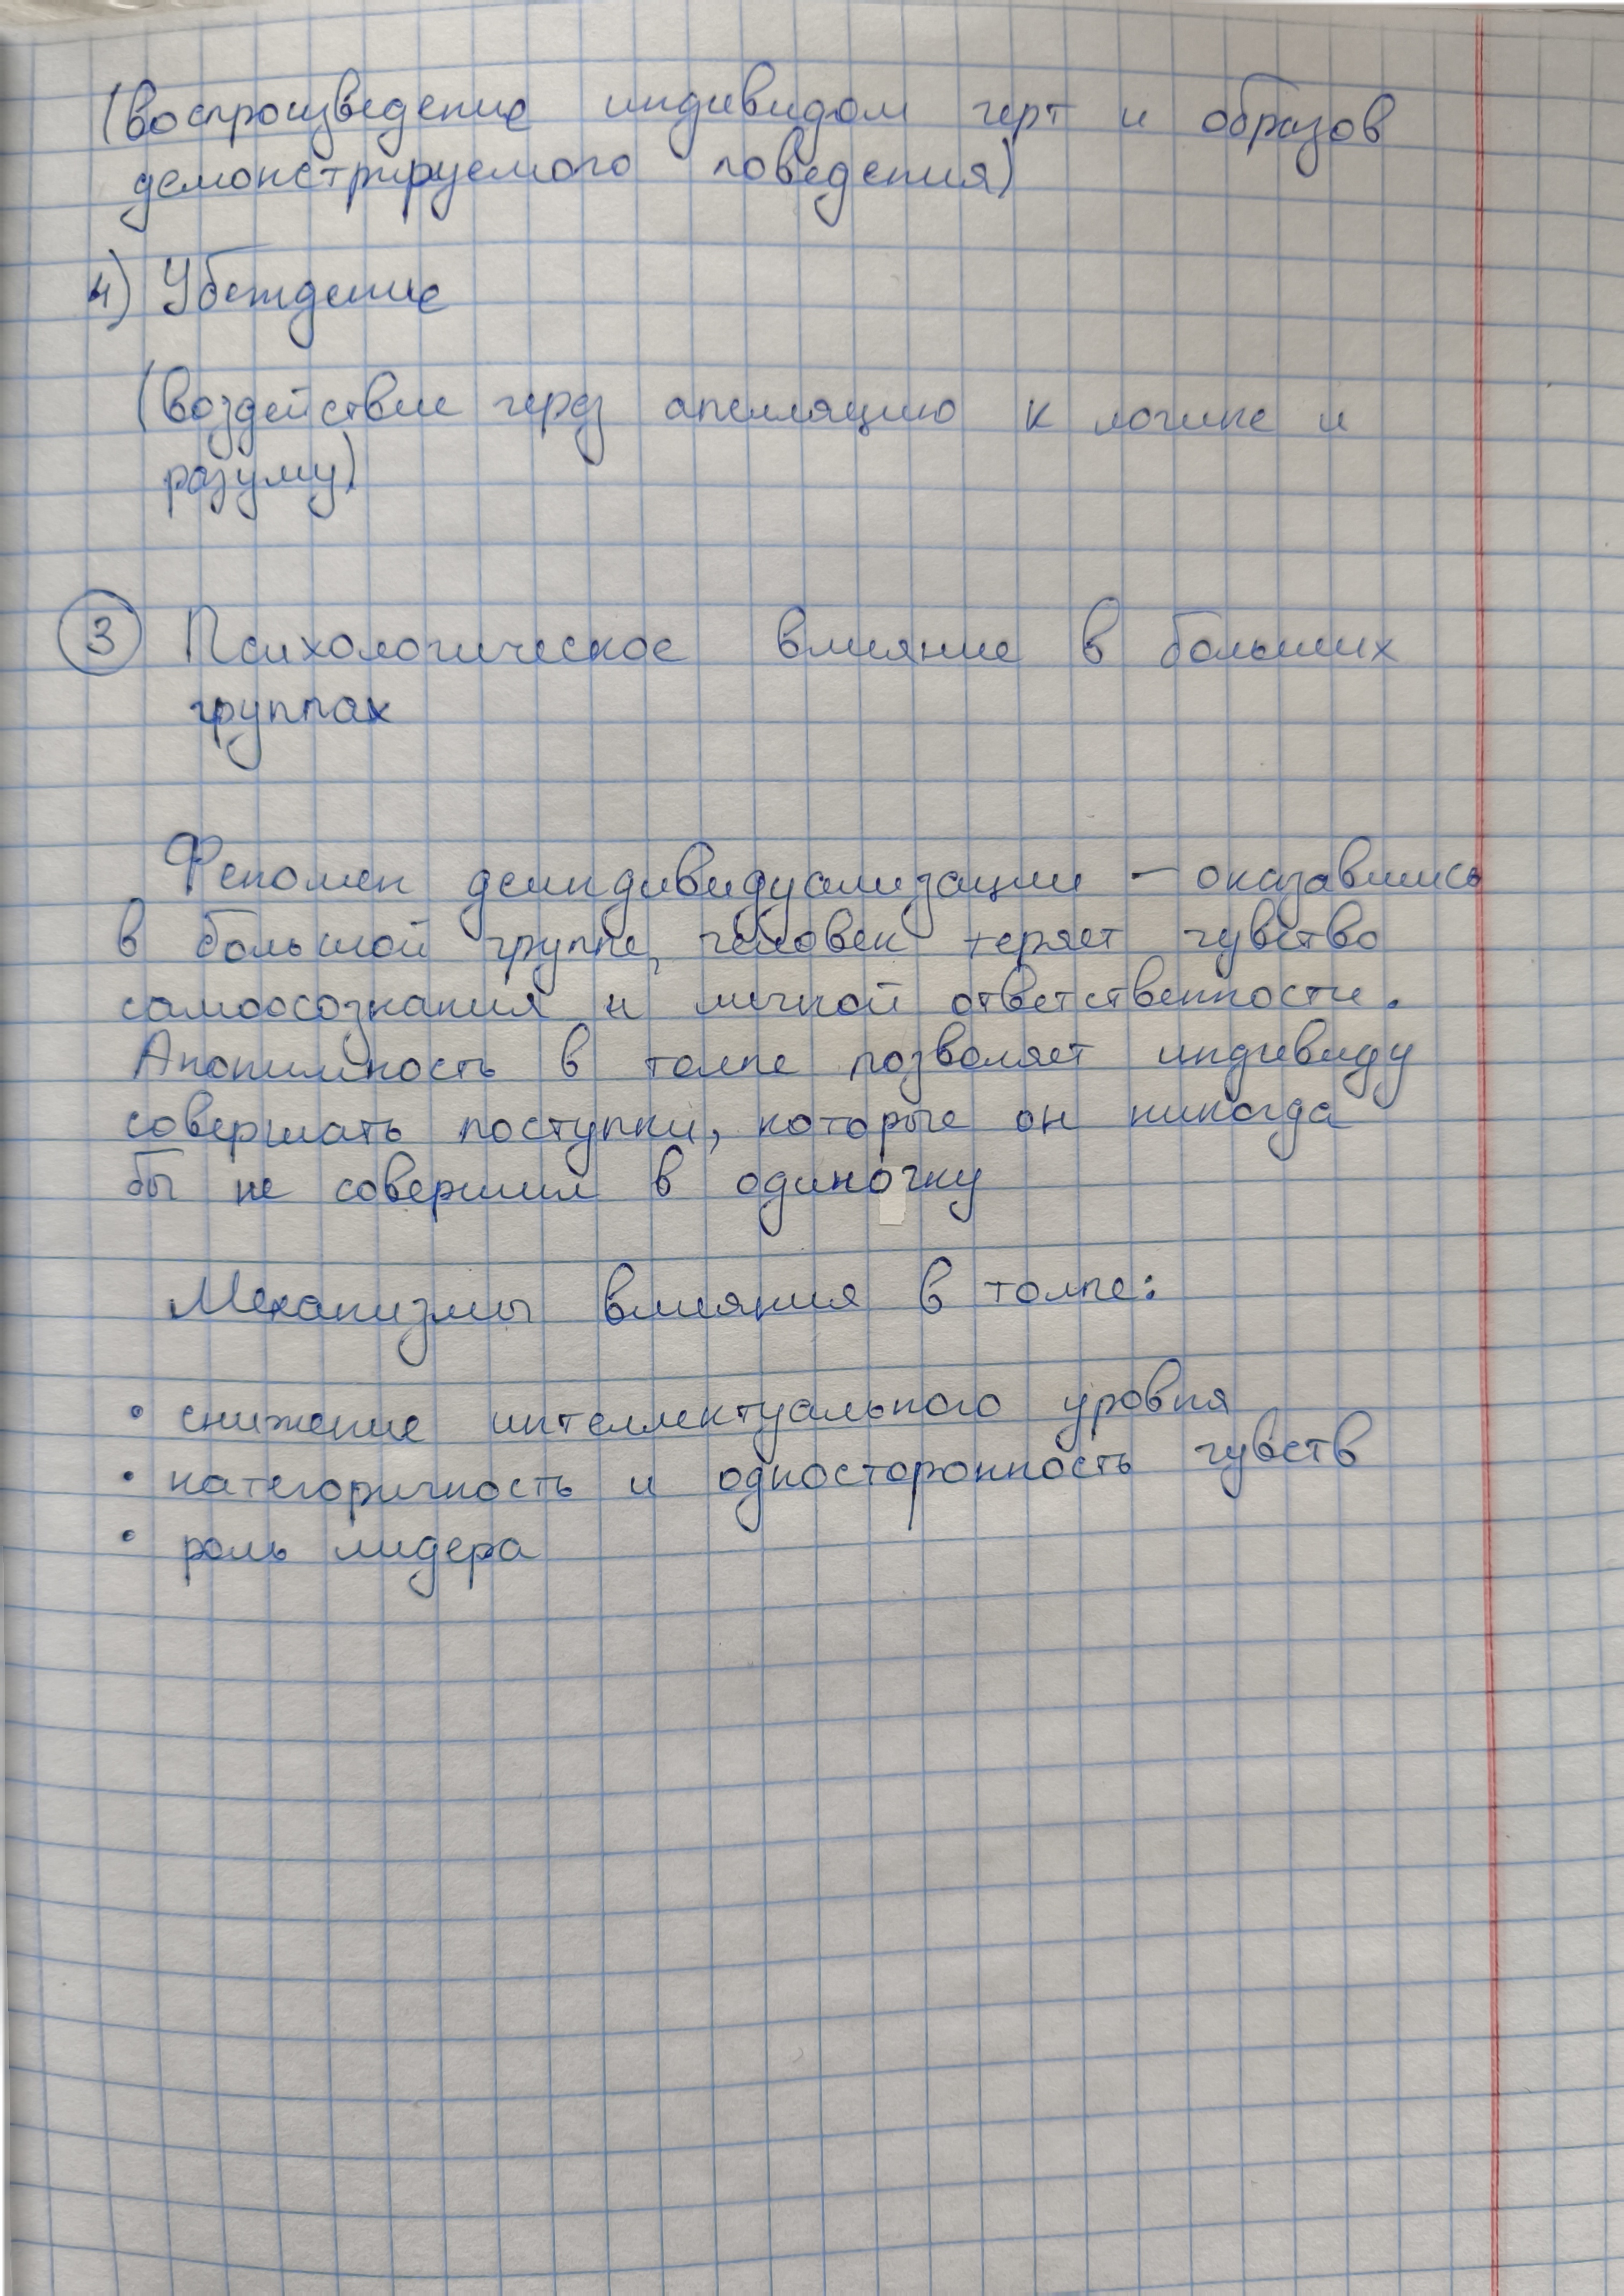 (воспроизведение индивидом черт и образов
демонстрируемого поведения)
4) Убеждение
(воздействие через апелляцию к логике и
разуму)
3 Психологическое влияние в больших
группах
Феномен деиндивидуализации - оказавшись
в большой группе, человек теряет чувство
самоосознания и личной ответственности.
Анонимность в толпе позволяет индивиду
совершать поступки, которые он никогда
бы не совершил в одиночку
Механизмы влияния в толпе:
• снижение интеллектуального уровня
• категоричность и односторонность чувств
• роль лидера